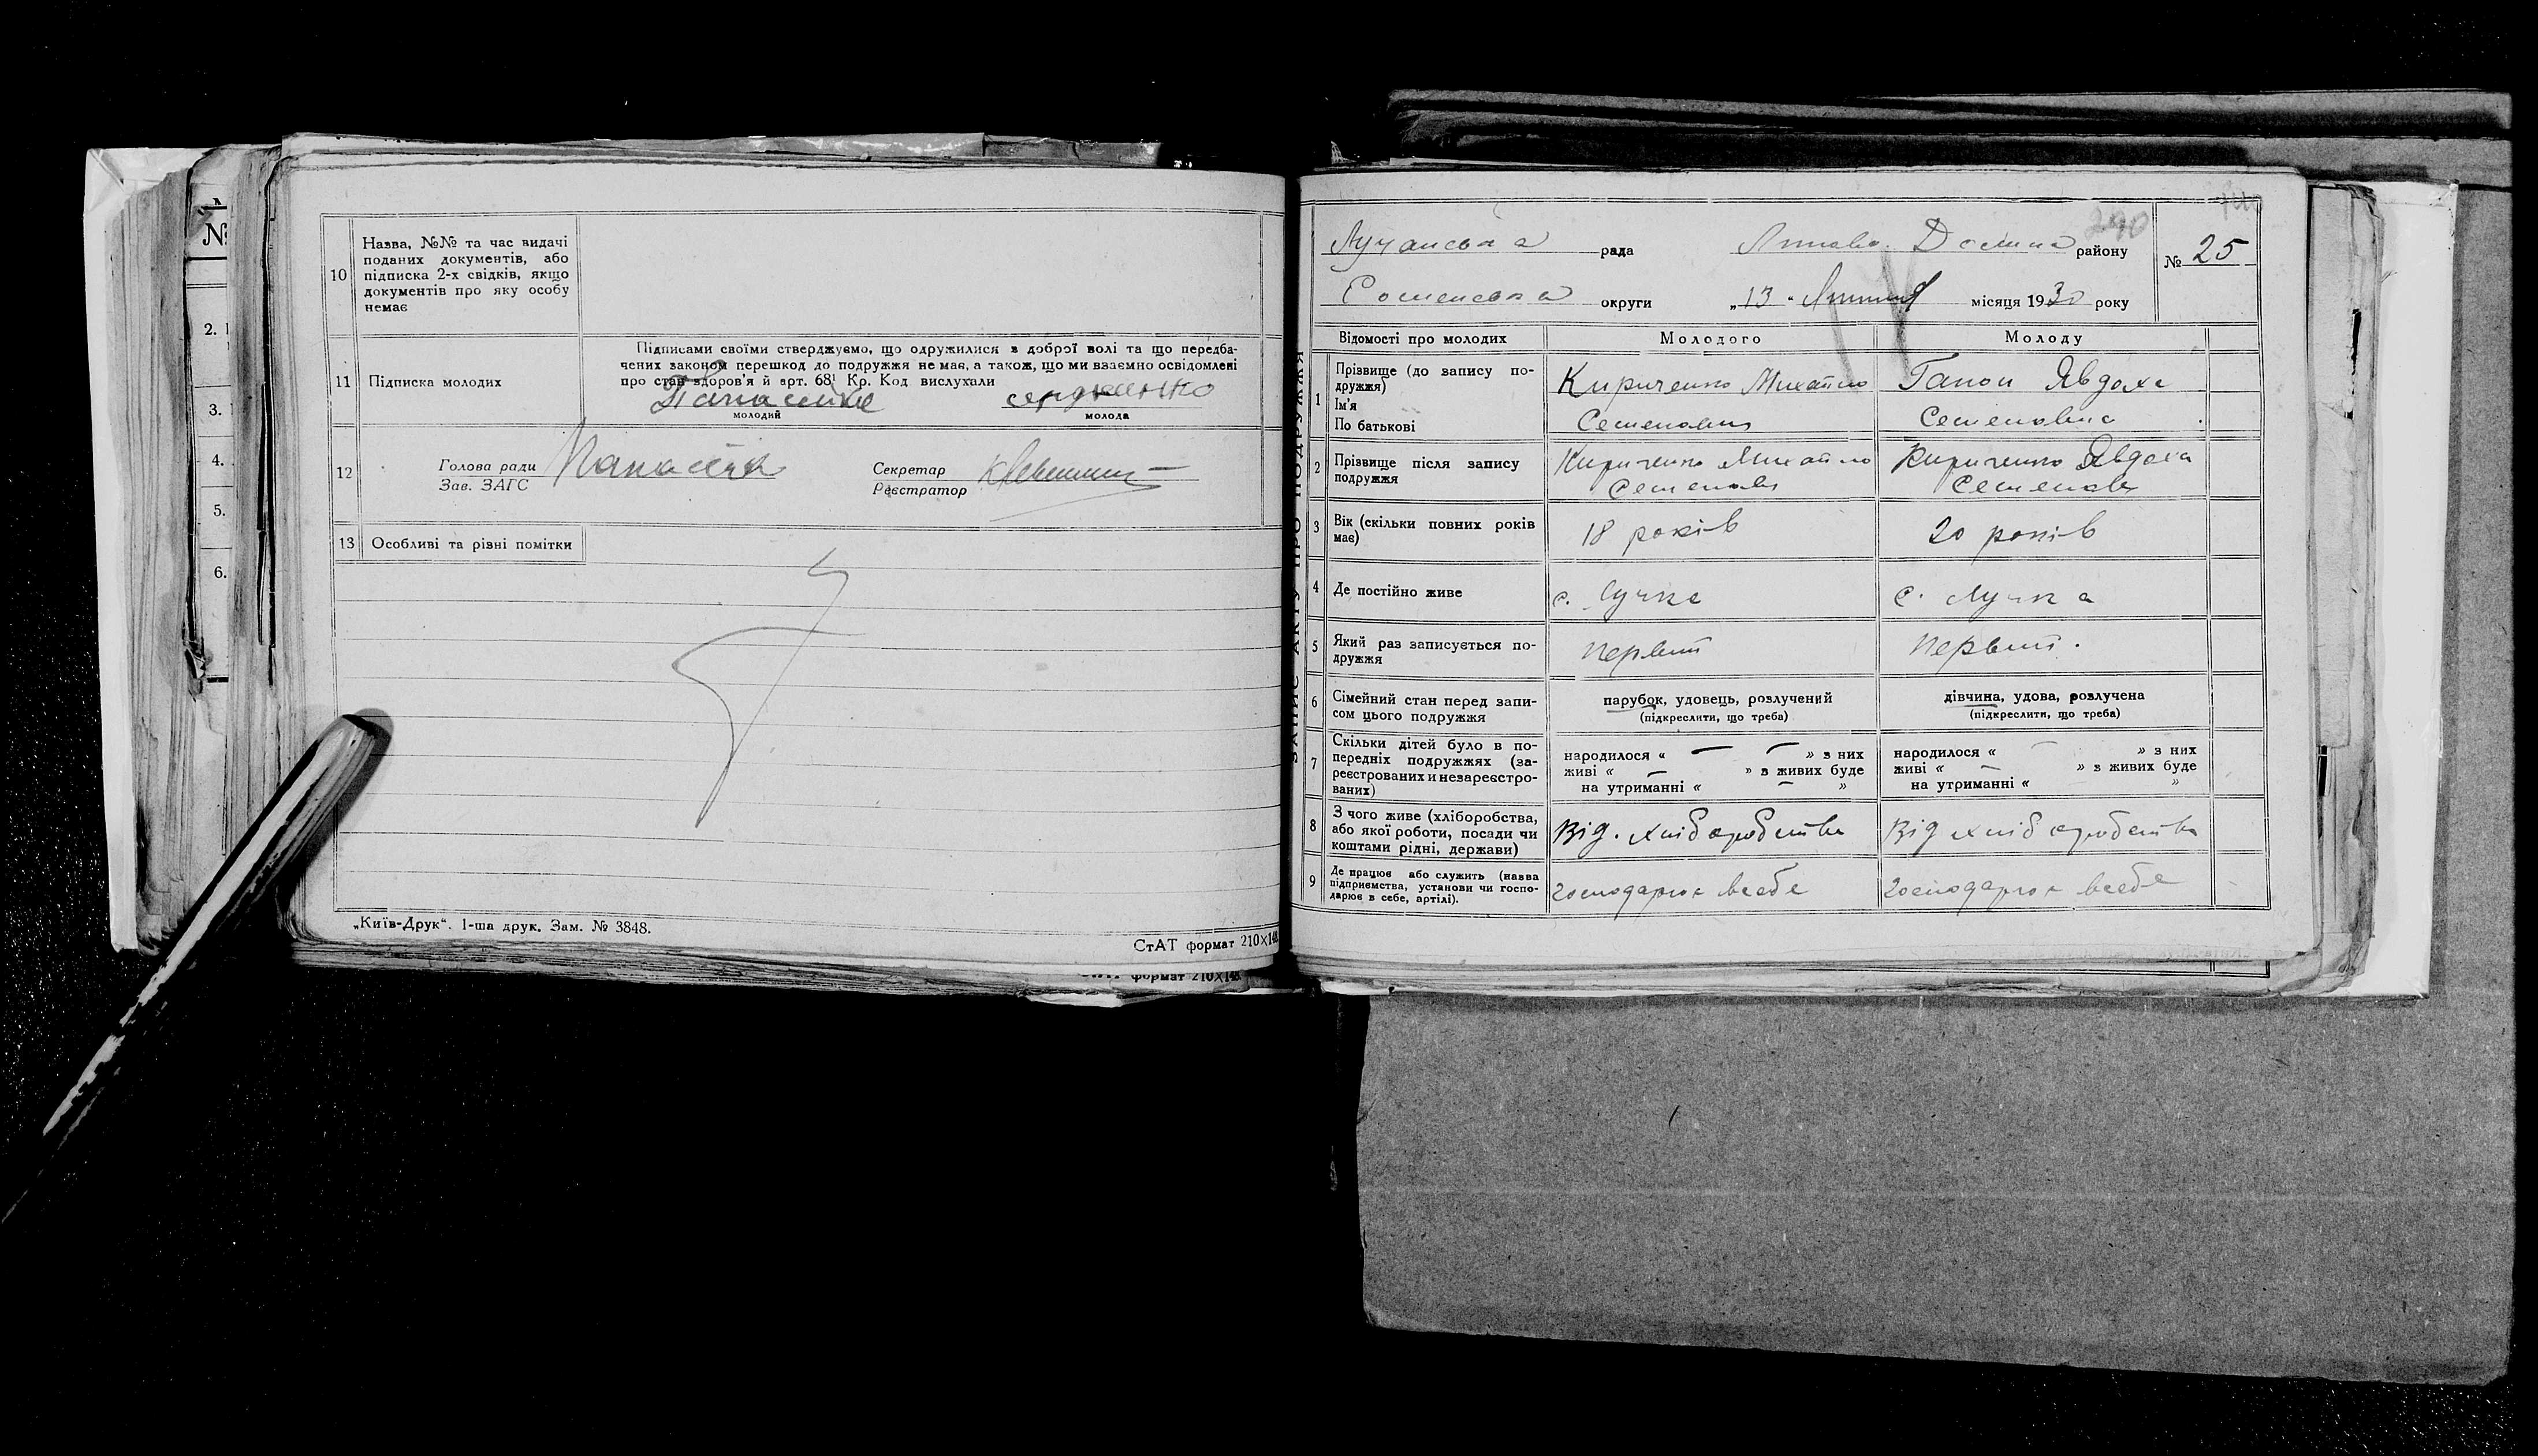 №
2.
3.
4.
5.
6.
10
Назва, №№ та час видачі
поданих документів, або
підписка 2-х свідків, якщо
документів про яку особу
немає
11
Підписка молодих
Підписами своїми стверджуємо, що одружилися з доброї волі та що передба-
чених законом перешкод до подружжя не має, а також, що ми взаємно освідомлені
про стан здоров'я й арт. 68¹ Кр. Код вислухали
молодий
молода
12
Голова ради
Зав. ЗАГС
Секретар
Реєстратор
13
Особливі та різні помітки
„Київ-Друк“. 1-ша друк. Зам. № 3848.
СтАТ формат 210×148
формат 210×148
ЗАПИС АКТУ ПРО ПОДРУЖЖЯ
Лучанська рада Липово. Долина району
240
№ 25
Роменська округи „13“ Липня місяця 1930 року
Відомості про молодих
Молодого
Молоду
1
Прізвище (до запису по-
дружжя)
Ім'я
По батькові
Кириченко Михайло
Семенович
Гапон Явдоха
Семеновна
2
Прізвище після запису
подружжя
Кириченко Михайло
Семенов
Кириченко Явдоха
Семенов
3
Вік (скільки повних років
має)
18 років
20 років
4
Де постійно живе
с. Лучка
с. Лучка
5
Який раз записується по-
дружжя
первий
первий.
6
Сімейний стан перед запи-
сом цього подружжя
парубок, удовець, розлучений
(підкреслити, що треба)
дівчина, удова, розлучена
(підкреслити, що треба)
7
Скільки дітей було в по-
передніх подружжях (за-
реєстрованих и незареєстро-
ваних)
народилося « — — » з них
живі « — » з живих буде
на утриманні « — »
народилося « — » з них
живі « — » з живих буде
на утриманні « »
8
З чого живе (хліборобства,
або якої роботи, посади чи
коштами рідні, держави)
Від. хліборобства
Від хліборобства
9
Де працює або служить (назва
підприємства, установи чи госпо-
дарює в себе, артілі).
господарює всебе
господарює всебе